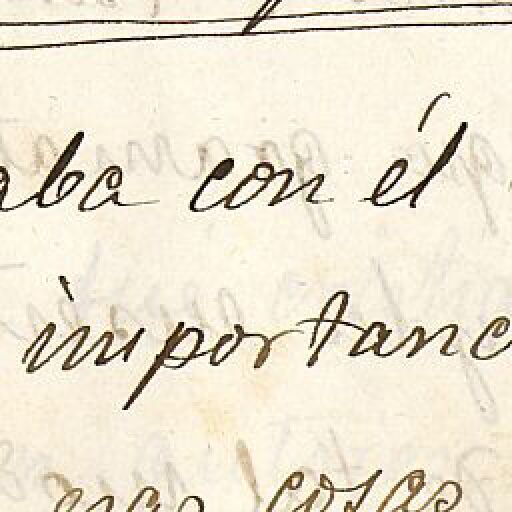 aba con él
importanc
cosas